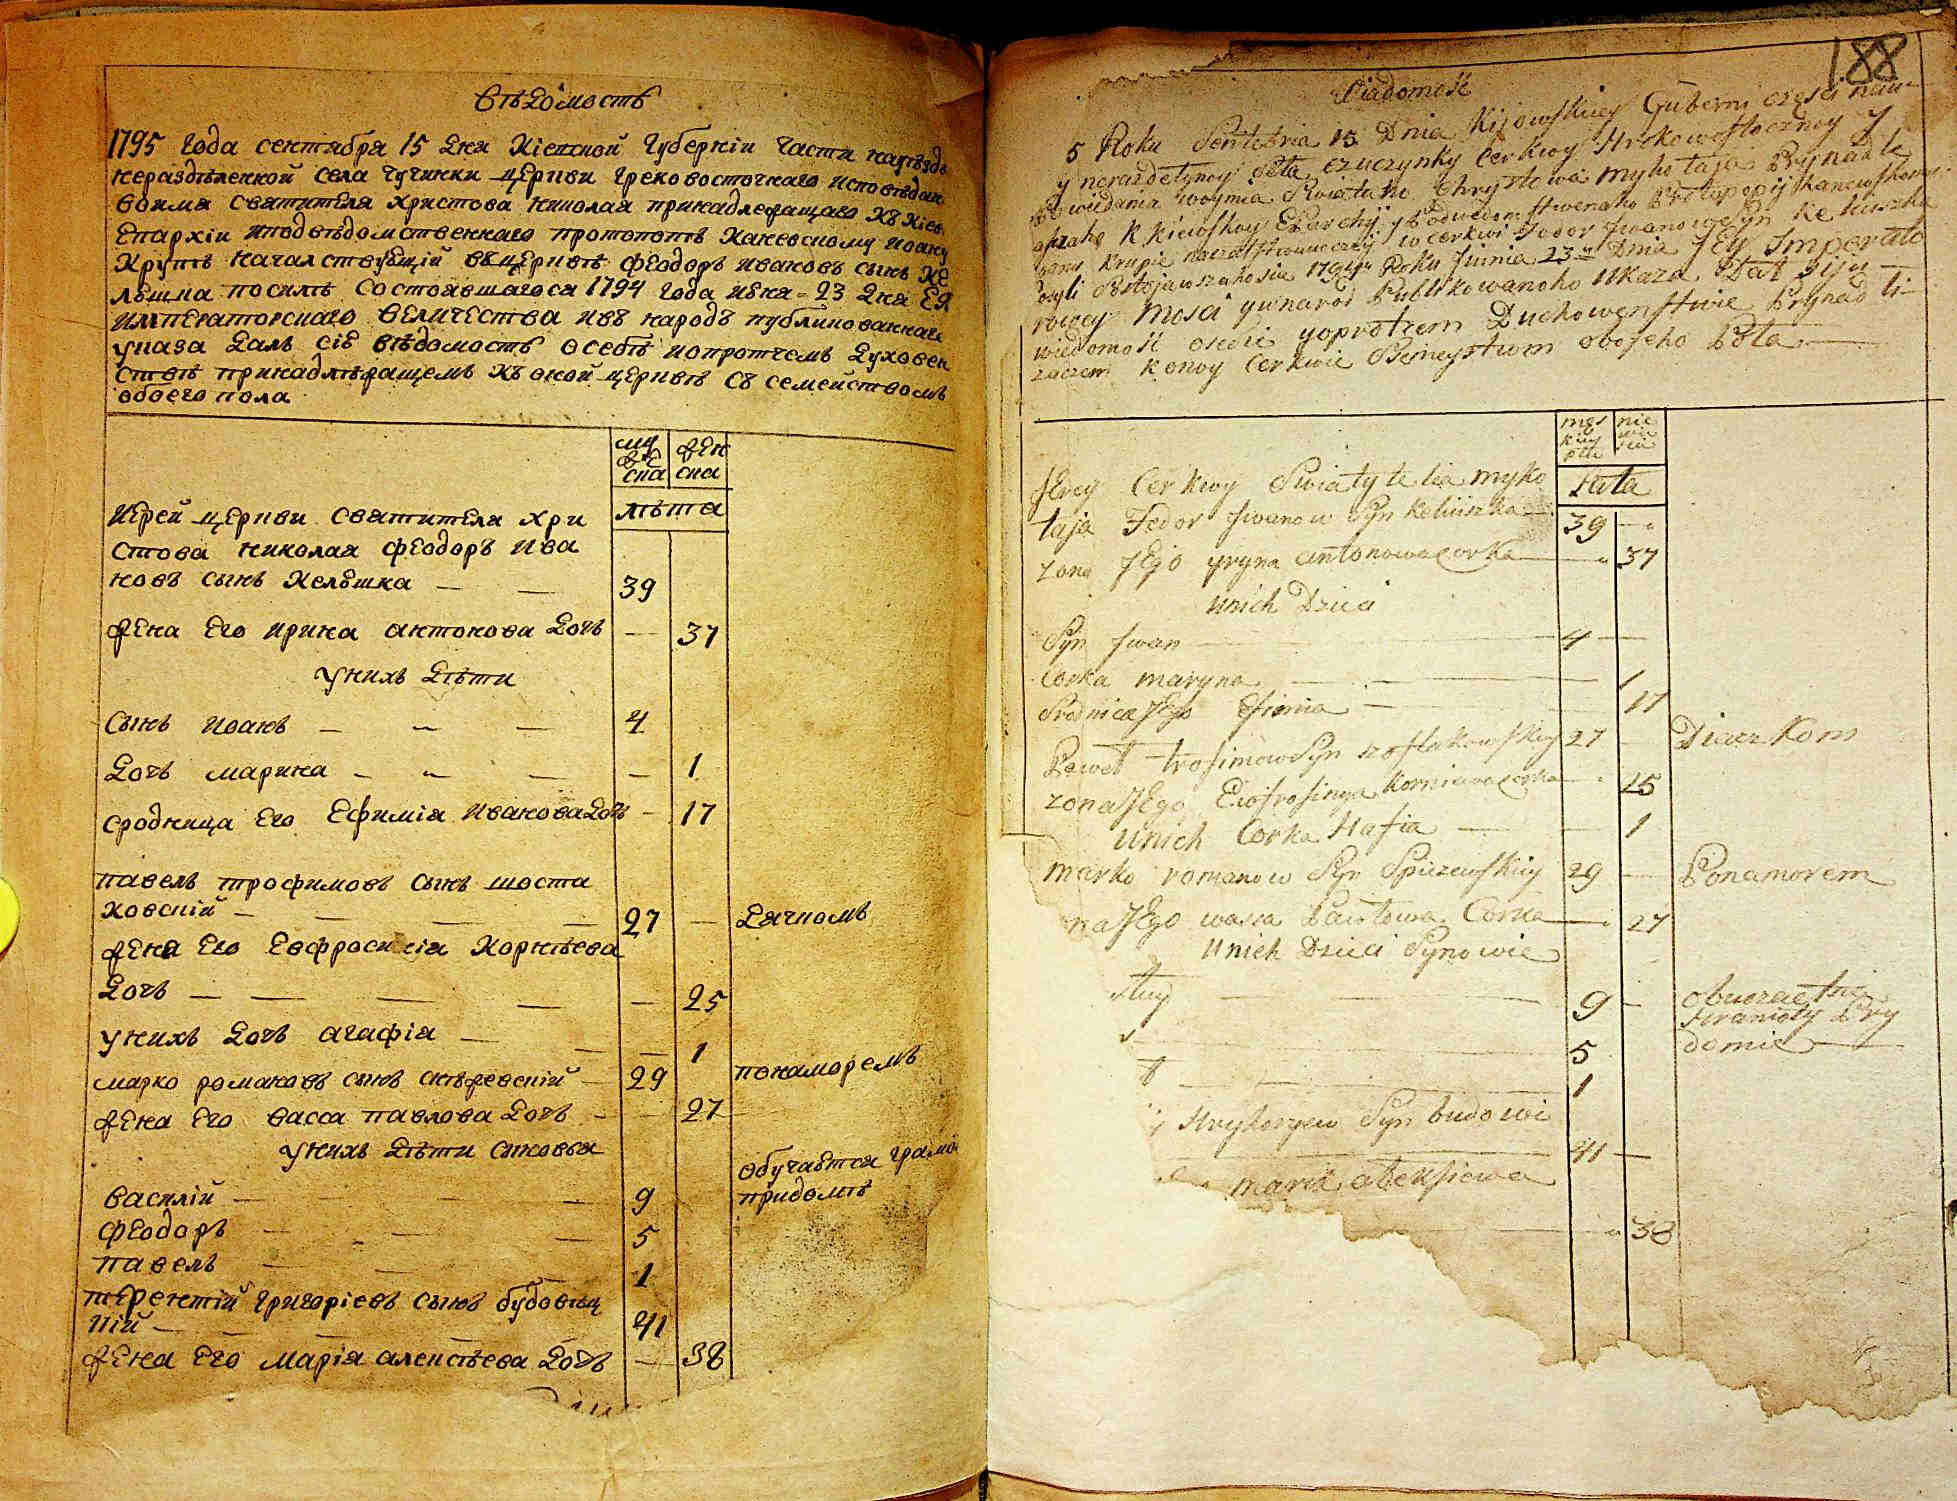 Вѣдомость
1795 года сентября 15 дня Кіевской губерніи части науѣзды
нераздѣленной села чучинки церкви греко восточнаго исповѣдан
воимя святителя христова николая принадлежащаго къ кіев
епархіи иподвѣдомственнаго протопопѣ каневскому иоану
крупѣ началствующій вцерквѣ феодоръ ивановъ сынъ ке
люшка посилѣ состоявшагося 1794 года июня 23 дня ея
императорскаго величества ивъ народъ публикованнаго
указа далъ сію вѣдомость осебѣ ипопротчемъ духовен
ствѣ принадлѣжащемъ къ оной церквѣ съ семействомъ
обоего пола
му
же
ска
жен
ска
лѣта
Иерей церкви святителя хри
стова николая феодоръ ива
новъ сынъ келюшка — — 39
жена его ирина антонова дочь — 37
унихъ дѣти
сынъ иоанъ — — 4
дочь марина — — 1
сродница его ефимія иванова дочь — 17
павелъ трофимовъ сынъ шоста
ковскій — — 27 — дячкомъ
жена его евфросинія корнѣева
дочь — — 25
унихъ дочь агафія — — 1
марко романовъ сынъ снѣжевскій — 29 понамаремъ
жена его васса павлова дочь — 27
унихъ дѣти сыновья
василій — 9 обучается грамо
придомѣ
феодоръ — 5
павелъ — 1
терентій григоріевъ сынъ будовѣц
кій — 41
жена его марія алексѣева дочь — 38
188
Wiadomość
5 Roku Sentebria 15 Dnia Kijowskiey Guberni częsci nau-
y nerazdełynoy Seła czuczynky Cerkwy Hrekowostocznoy y
powiedania woymia Swiatytela Chrystowa mykołaja Prynadle
żaszaho K kiewskoy Eparchy y Podwedomstwenaho Protopopij Kaniowskomu
Krupie naczalstwuiuczy w cerkwi Fedor Jwanow Syn Keluszka
posyli Sostojawszahosia 1794 Roku Junia 23 Dnia JEy Jmperato
rowey Mosci ywnarod Publikowanoho Ukaza Dał siju
wiedomość osebie yoprotczem Duchowenstwie Prynadli-
zaczem Konoy Cerkwie Siemeystwom obojeho Pola
męs
kiey
płci
nie
wie
scie
Lata
Jerey Cerkwy Swiatytelia myko
łaja Fedor Jwanow Syn Keluszka — 39 —
zona JEgo Jryna antonowa corka — 37
unich Dzieci
Syn Jwan — 4 —
Corka maryna — 1
Srodnica JEgo Efimia — 17
Paweł trofimow Syn szostakowskiy 27 — Diaczkom
zona JEgo Ewfrosinya Kornieiewa corka — 25
unich Corka Hafia — 1
marko romanow Syn Sniezewskiy 29 — Ponamorem
na JEgo wassa Pawłowa Corka — 27
unich Dzieci Synowie
9 — obuczaetsia
Hramoty Pry
domie
5
1
Hryhoryew Syn budowi
41 —
maria aleksiewa
38